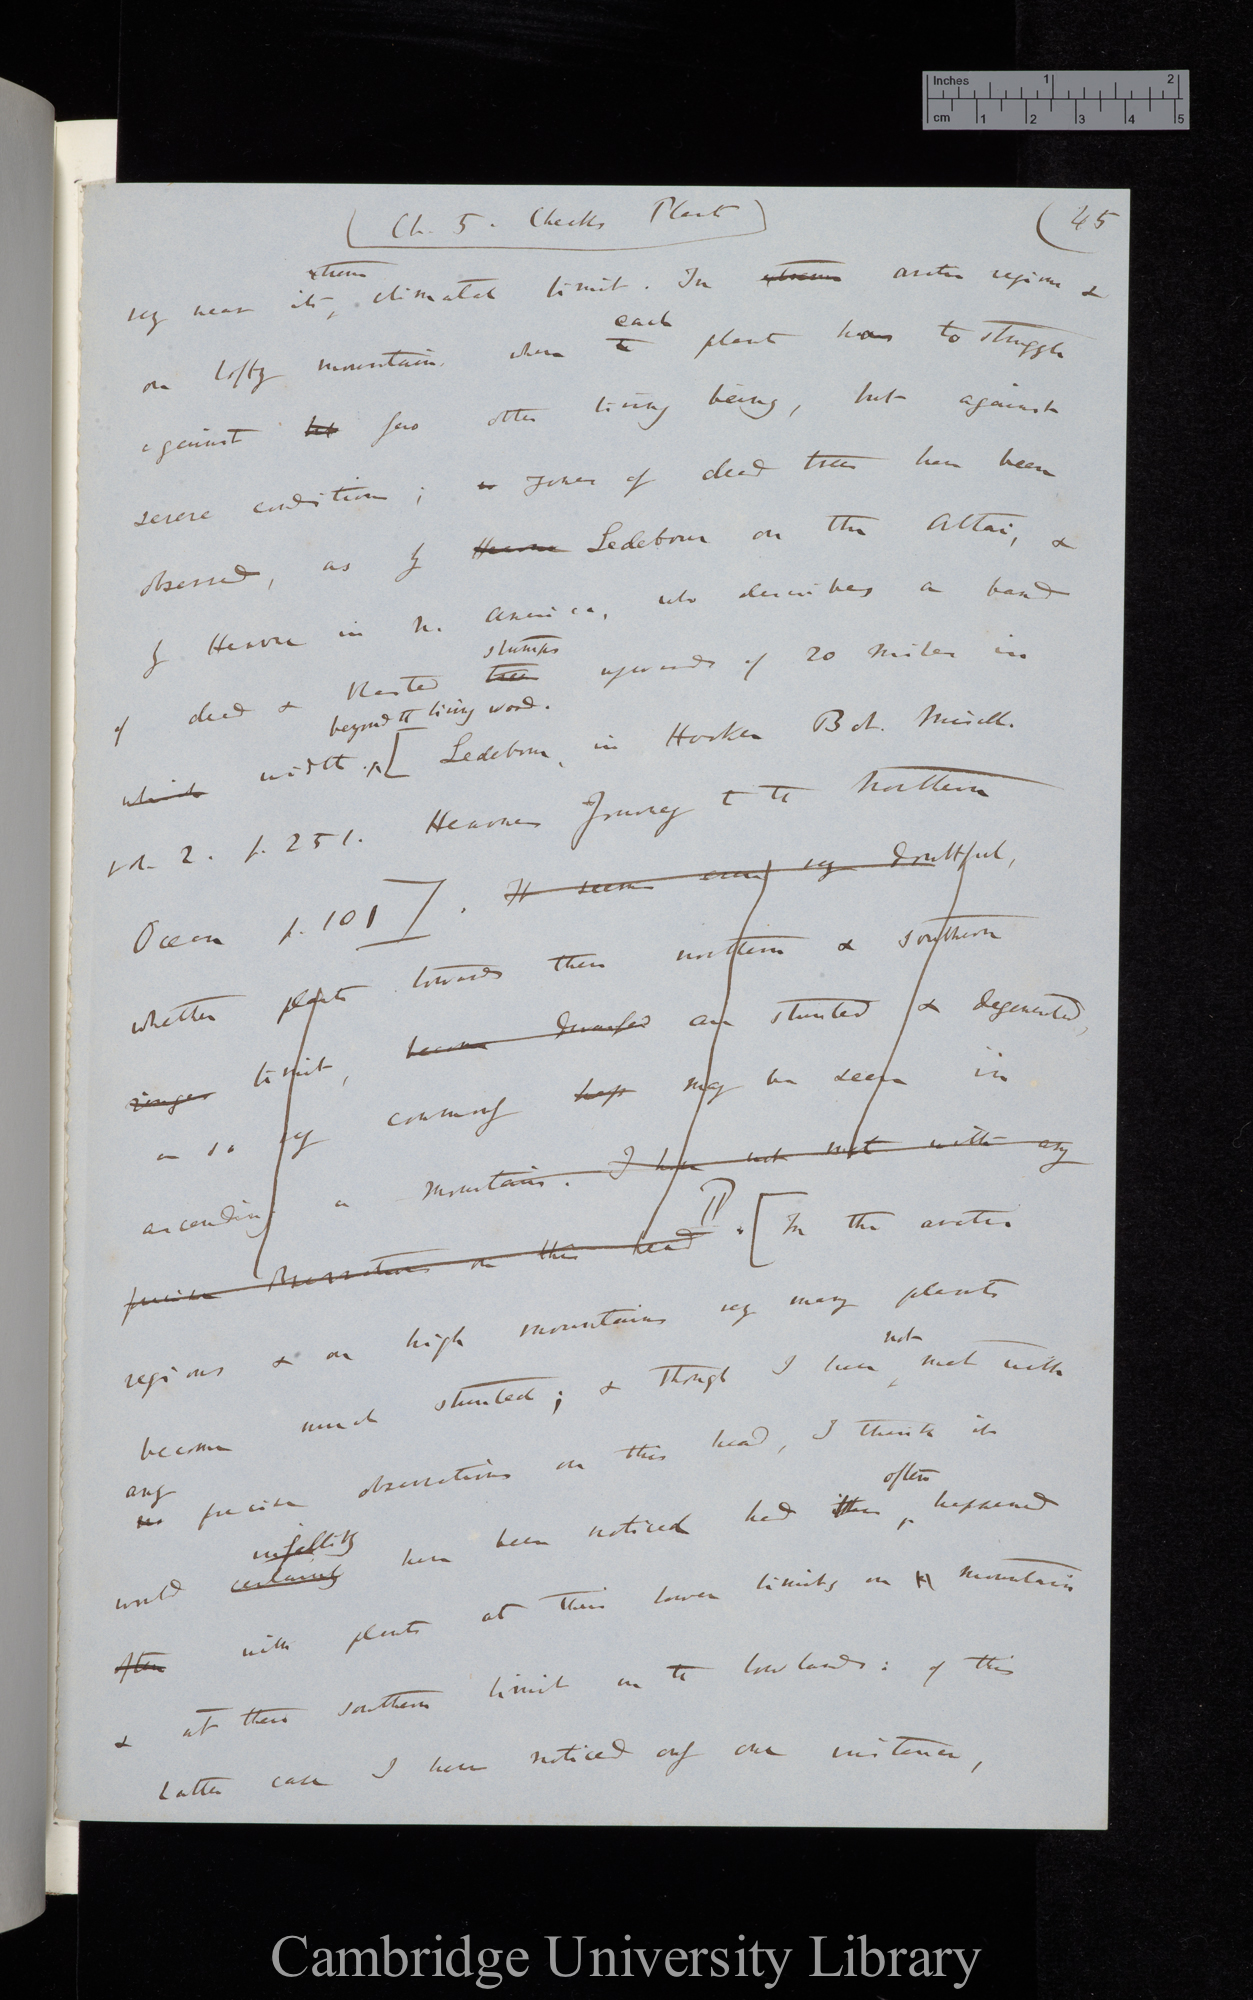 Inches 1 2
cm 1 2 3 4 5
(Ch. 5. Checks Plant)
(45
extreme
very near its climatal limit. In extreme arctic regions &
each
on lofty mountains, when the plant has to struggle
against but few other living beings, but against
severe conditions; zones of dead trees have been
observed, as by Hearne Ledebour on the Altai, &
by Hearne in N. America, who describes a band
stumps
of dead & blasted trees upwards of 20 miles in
beyond the living wood.
which width. [Ledebour, in Hooker Bot. Miscell.
vol. 2. p. 251. Hearnes Journey to the Northern
Ocean p. 101]. It seems very doubtful,
whether plants towards their northern & southern
ranges limit, become dwarfed are stunted & degenerated,
as so very commonly may be seen in
ascending a mountain. I have not met with any
precise observations on this head. [In the arctic
regions & on high mountains very many plants
not
become much stunted; & though I have met with
any
no precise observations on this head, I think it
often
infallibly
would certainly have been noticed had this happened
often with plants at their lower limits on mountains
& at their southern limit on the lowlands: of this
latter case I have noticed only one instance,
Cambridge University Library